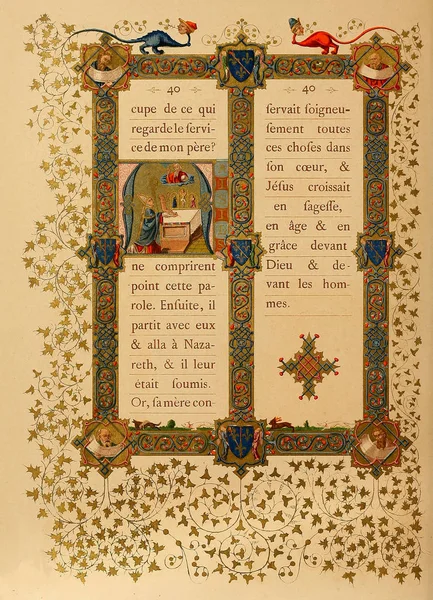 40
cupe de ce qui
regarde le ſervi-
ce de mon père?
ne comprirent
point cette pa-
role. Enſuite, il
partit avec eux
& alla à Naza-
reth, & il leur
était ſoumis.
Or, ſa mère con-
40
ſervait ſoigneu-
ſement toutes
ces choſes dans
ſon cœur, &
Jéſus croiſſait
en ſageſſe,
en âge & en
grâce devant
Dieu & de-
vant les hom-
mes.